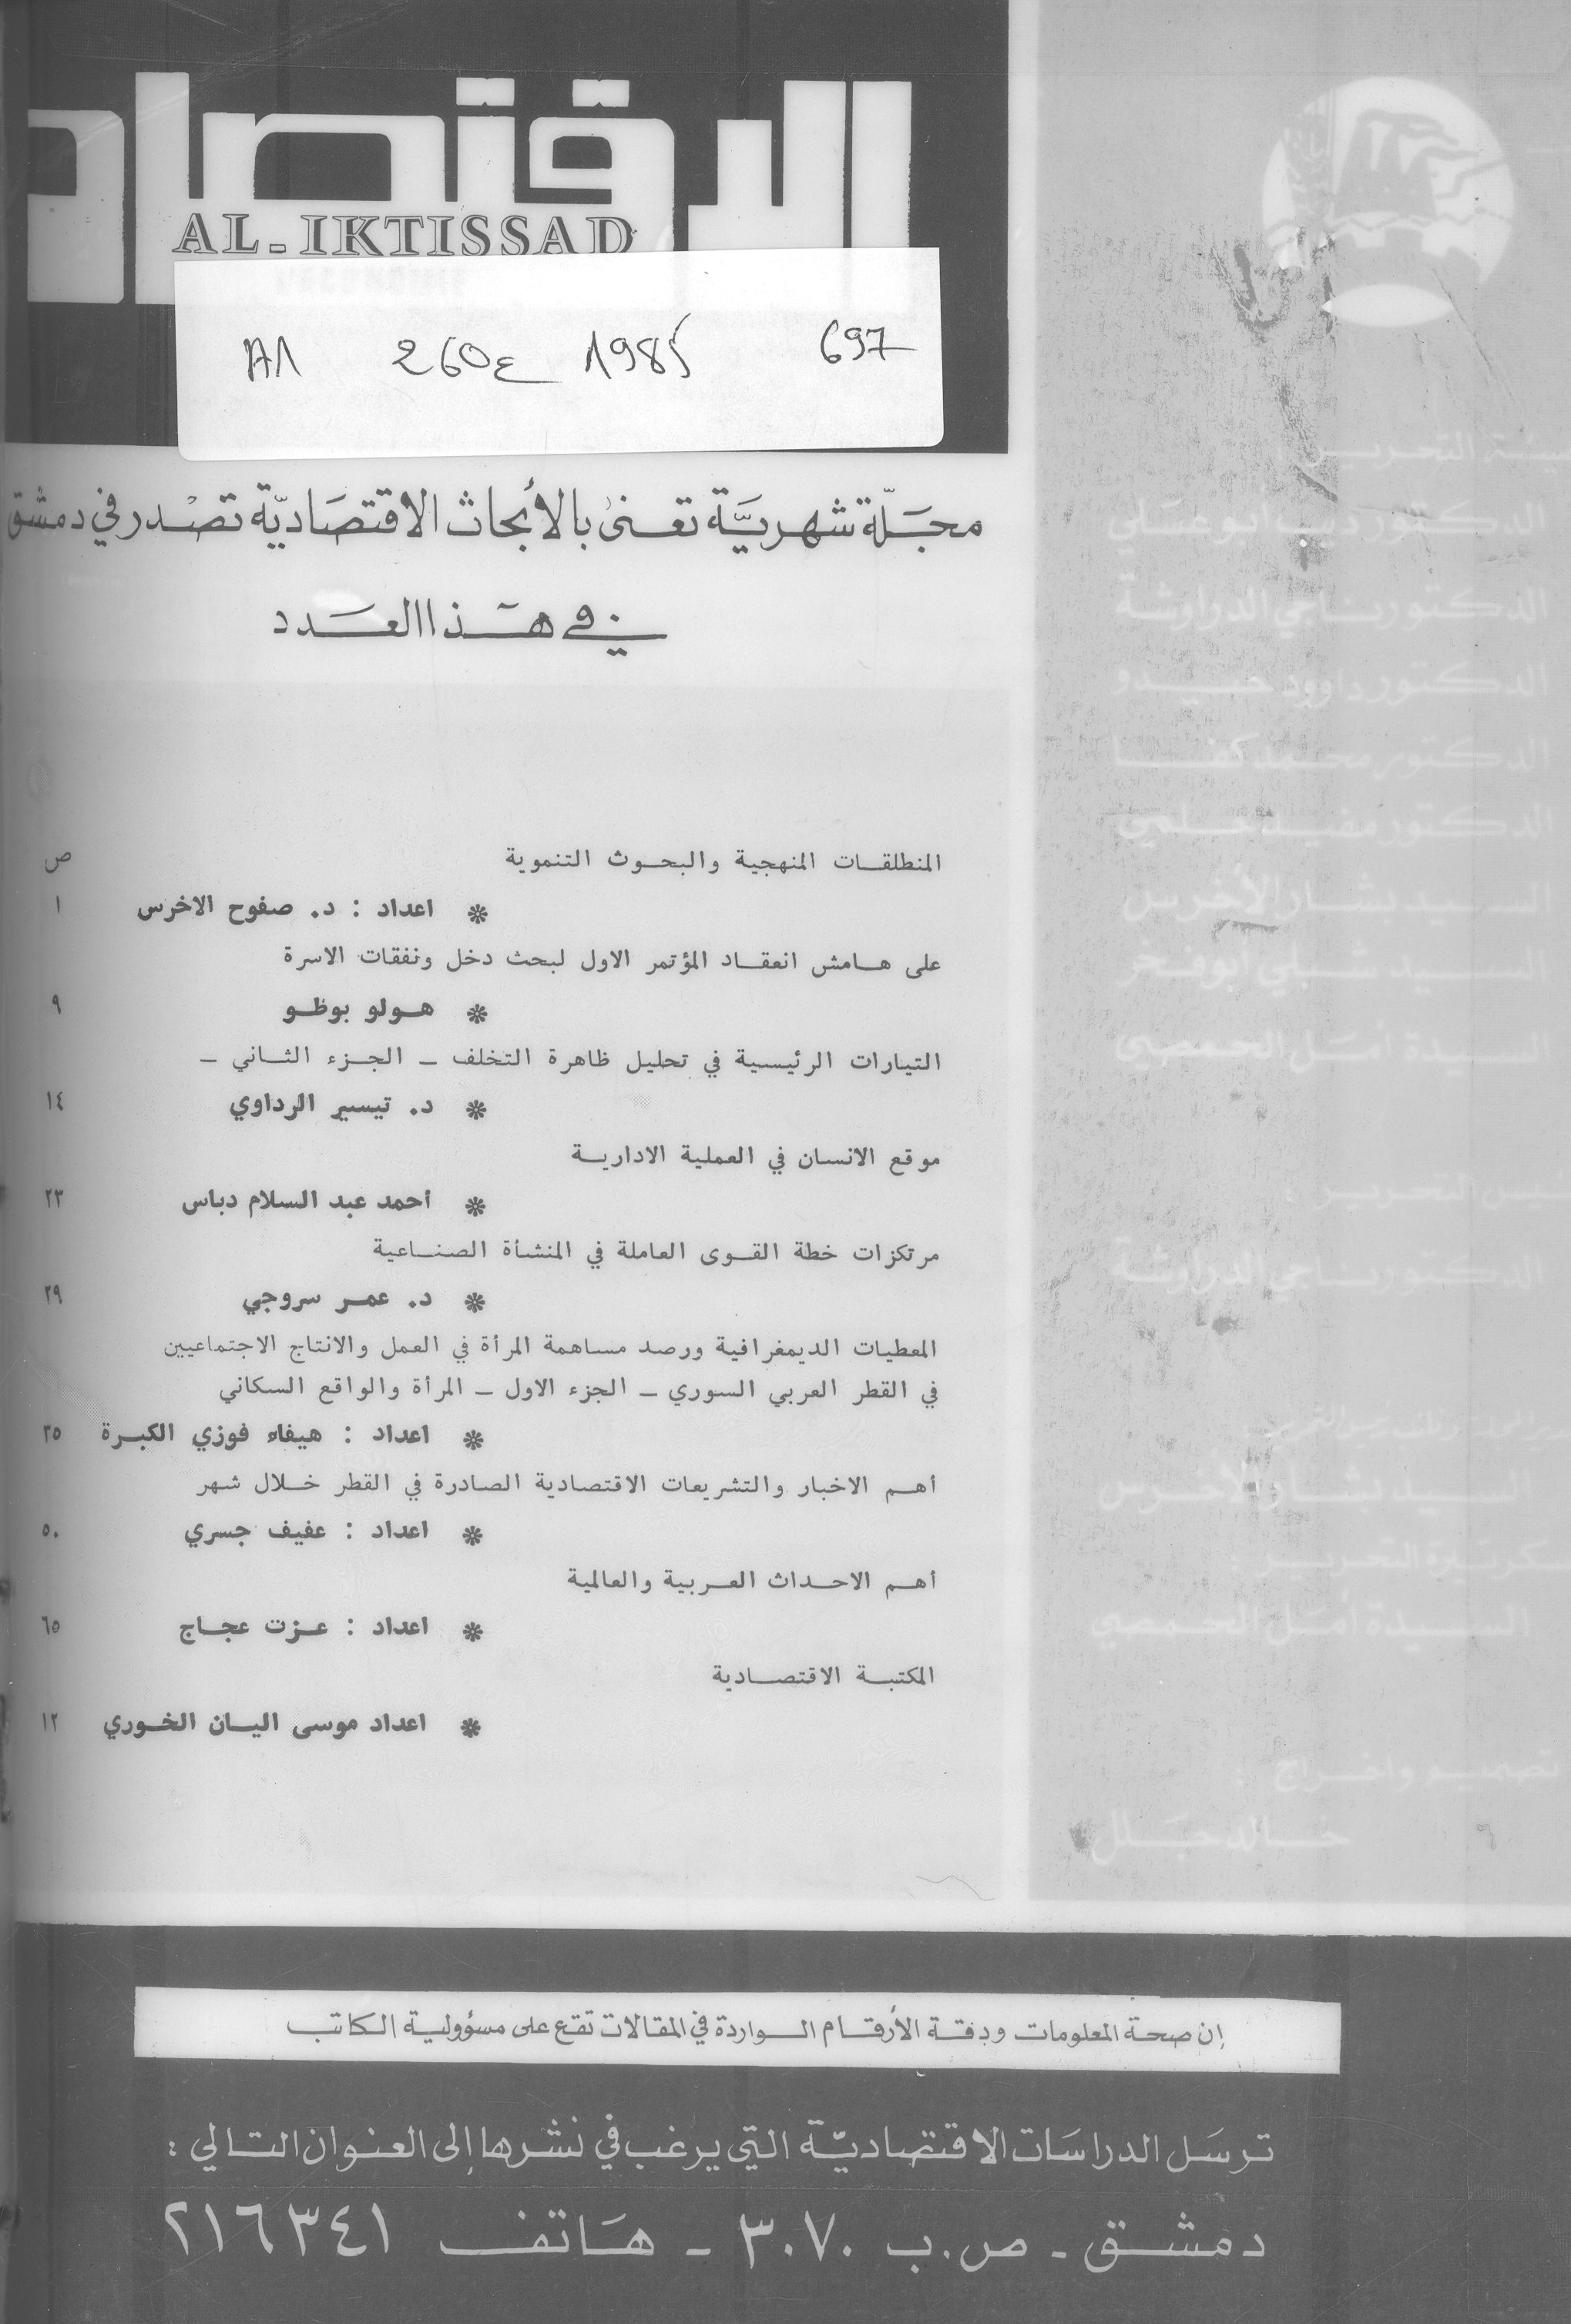 الاقتصاد
AL-IKTISSAD
A1 260ع 1985 697
مجلّة شهريَّة تعنى بالأبحاث الاقتصَاديّة تصْدر في دمشق
في هَذا العَدد
ص
المنطلقات المنهجية والبحوث التنموية
* اعداد : د. صفوح الاخرس ١
على هامش انعقاد المؤتمر الاول لبحث دخل ونفقات الاسرة
* هولو بوظو ٩
التيارات الرئيسية في تحليل ظاهرة التخلف – الجزء الثاني –
* د. تيسير الرداوي ١٤
موقع الانسان في العملية الادارية
* أحمد عبد السلام دباس ٢٣
مرتكزات خطة القوى العاملة في المنشأة الصناعية
* د. عمر سروجي ٢٩
المعطيات الديمغرافية ورصد مساهمة المرأة في العمل والانتاج الاجتماعيين
في القطر العربي السوري – الجزء الاول – المرأة والواقع السكاني
* اعداد : هيفاء فوزي الكبرة ٣٥
أهم الاخبار والتشريعات الاقتصادية الصادرة في القطر خلال شهر
* اعداد : عفيف جسري ٥٠
أهم الاحداث العربية والعالمية
* اعداد : عزت عجاج ٦٥
المكتبة الاقتصادية
* اعداد موسى اليان الخوري ١٢
التحرير :
الدكتور ناجي الدراوشة
الدكتور داوود حيدو
الدكتور محمد كفا
الدكتور مفيد حلمي
السيد بشار الأخرس
السيدة أمل الحمصي
التحرير :
الدكتور ناجي الدراوشة
السيد بشار الأخرس
سكرتيرة التحرير :
السيدة أمل الحمصي
تصميم واخراج :
خالد جلل
إن صحة المعلومات ودقة الأرقام الواردة في المقالات تقع على مسؤولية الكاتب
ترسَل الدراسَات الاقتصاديّة التي يرغب في نشرها إلى العنوان التالي :
دمشق - ص.ب ٣٠٧٠ - هَاتف ٢١٦٣٤١